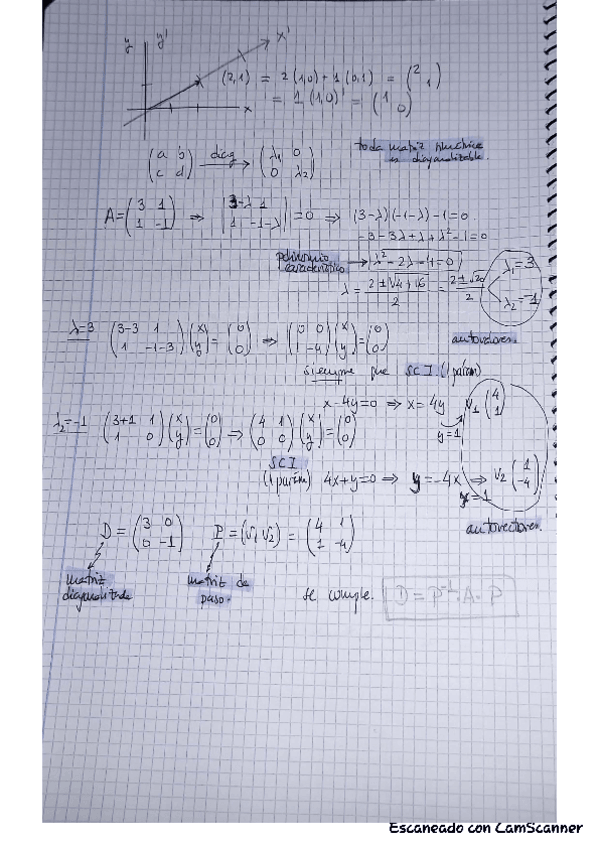 y y' x'
(2,1) = 2(1,0) + 1(0,1) = (2 1)
= 1(1,0)' = (1 0)
x
(a b; c d) diag → (λ₁ 0; 0 λ₂)
toda matriz simétrica
es diagonalizable.
A = (3 1; 1 -1) ⇒ |3-λ 1; 1 -1-λ| = 0 ⇒ (3-λ)(-1-λ)-1=0
-3-3λ+λ+λ²-1=0
polinomio
característico → λ²-2λ-4=0
λ = (2±√4+16)/2 = (2±√20)/2 λ₁=3 λ₂=-1
autovalores.
λ=3 (3-3 1; 1 -1-3)(x y) = (0 0) ⇒ (0 0; 1 -4)(x y) = (0 0)
siempre que SCI. (1 parám)
x-4y=0 ⇒ x=4y V₁(4 1)
y=1
λ₂=-1 (3+1 1; 1 0)(x y) = (0 0) ⇒ (4 1; 0 0)(x y) = (0 0)
SCI
(1 parám) 4x+y=0 ⇒ y=-4x ⇒ V₂(1 -4)
x=1
autovectores.
D = (3 0; 0 -1) P = (V₁ V₂) = (4 1; 1 -4)
matriz
diagonalizada
matriz de
paso.
se cumple. D = P⁻¹·A·P
Escaneado con CamScanner